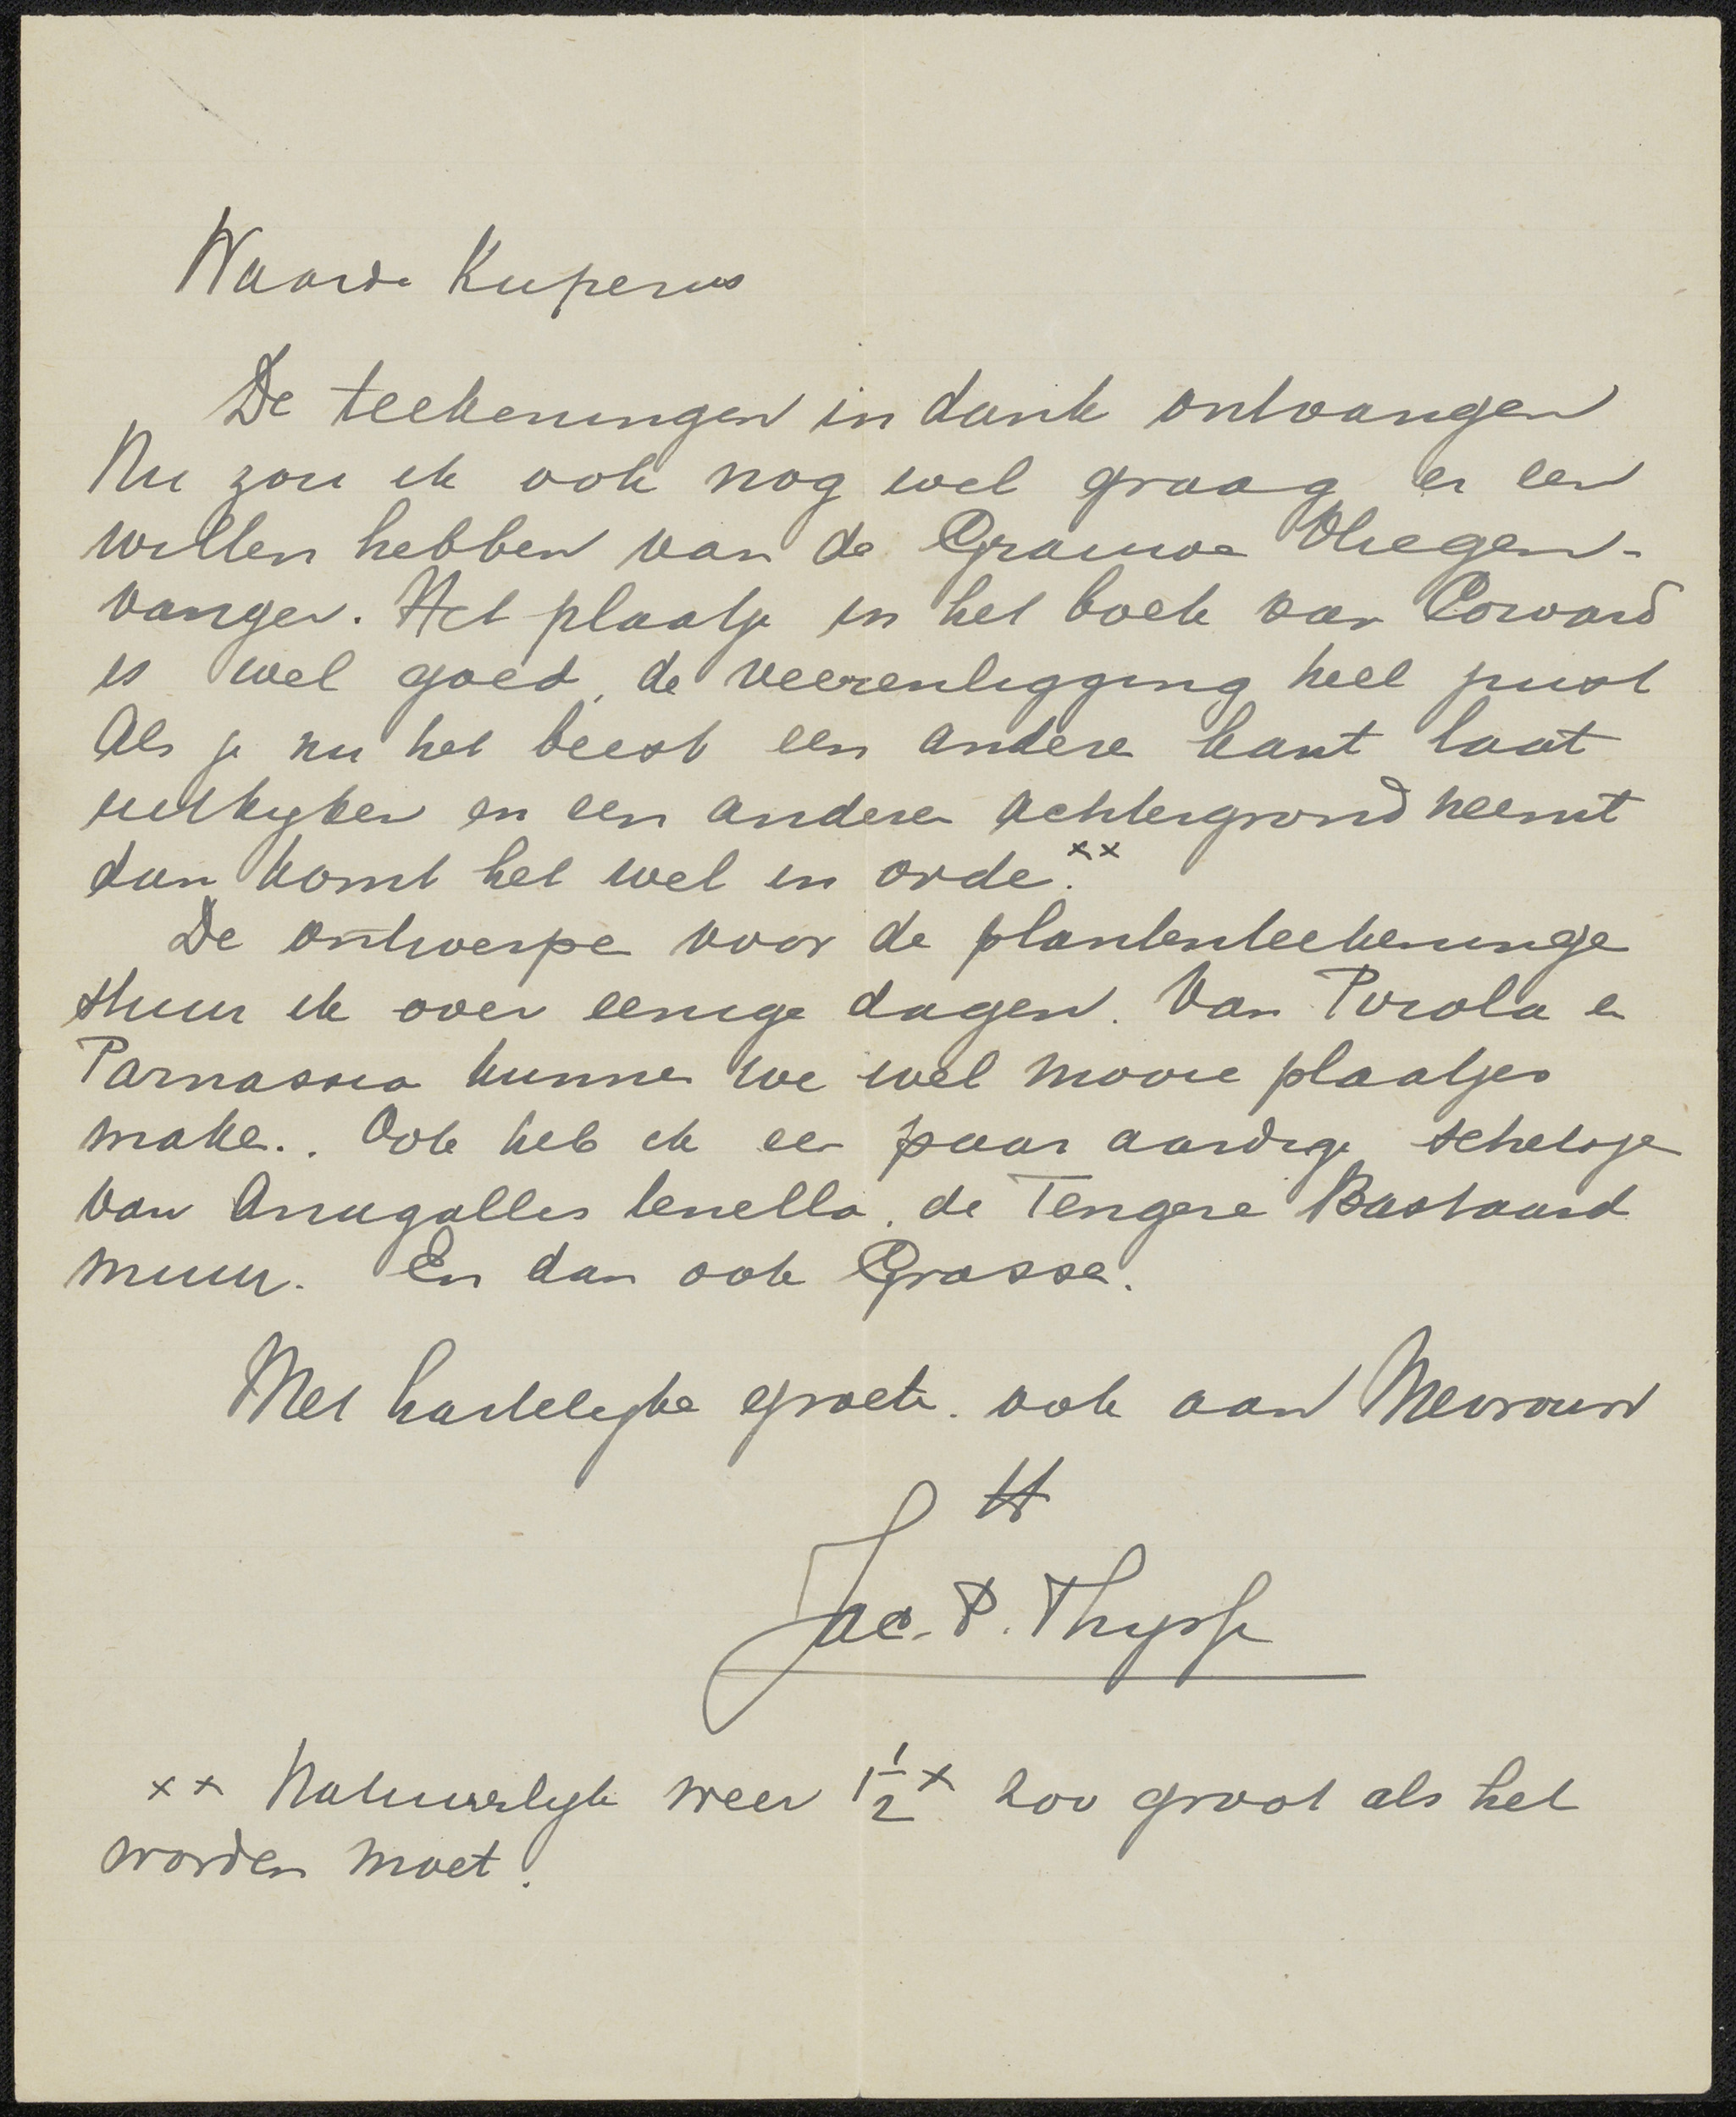 Waarde Kuperus
De teekeningen in dank ontvangen
Nu zou ik ook nog wel graag er een
willen hebben van de Grauwe Vliegen-
vanger. Het plaatje in het boek van Coward
is wel goed, de veerenligging heel juist
Als je nu het beest een andere kant laat
uitkyken en een andere achtergrond neemt
dan komt het wel in orde.xx
De ontwerpe voor de plantenteekeninge
stuur ik over eenige dagen. Van Pirola en
Parnassia kunnen we wel mooie plaatjes
make.. Ook heb ik een paar aardige schetsje
van Anagallis tenella, de Tengere Bastaard
muur. En dan ook Grassen.
Met hartelyke groete. ook aan Mevrouw
tt
Jac. P. Thysse
xx Natuurlyk weer 1½ x zoo groot als het
worden moet.